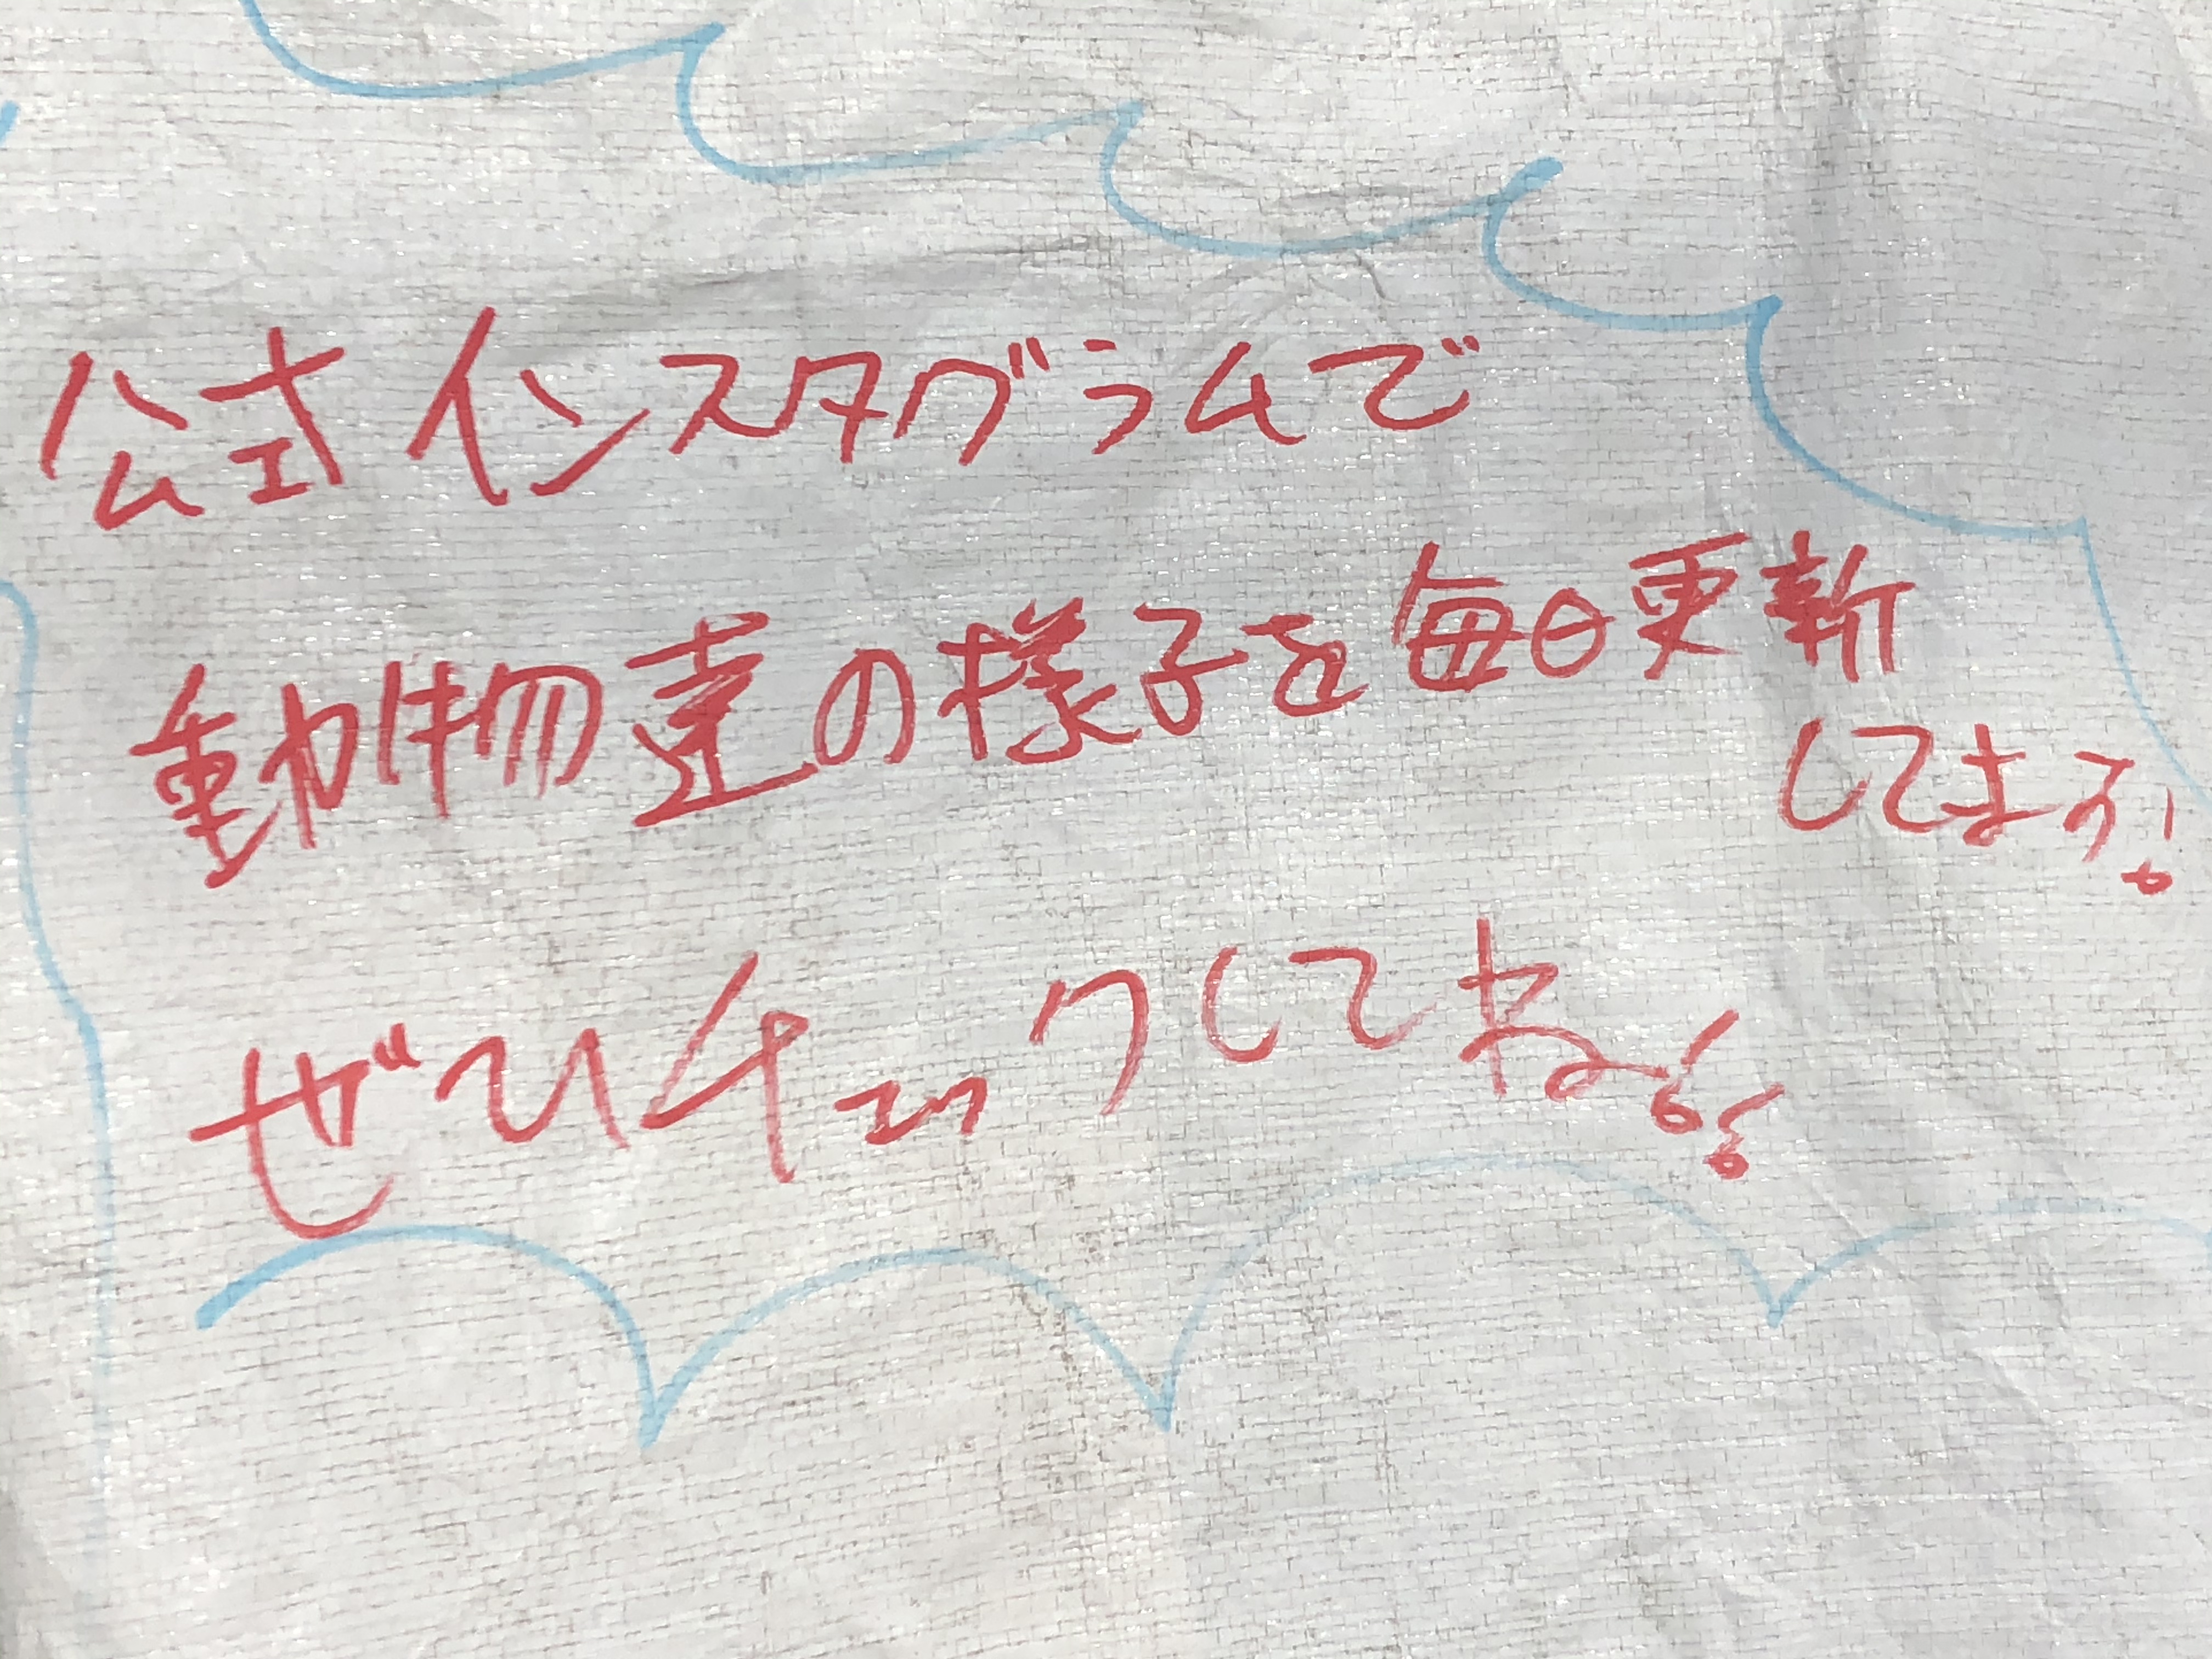 公式インスタグラムで
動物達の様子を毎日更新
してます!
ぜひチェックしてね!!